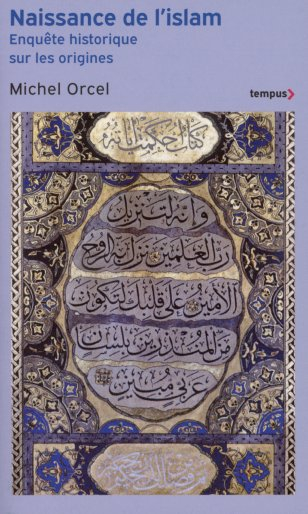 Naissance de l'islam
Enquête historique
sur les origines
Michel Orcel
tempus
كتاب احكمت اياته
وانه لتنزيل
رب العلمين نزل به الروح
الامين على قلبك لتكون
من المنذرين بلسان
عربي مبين